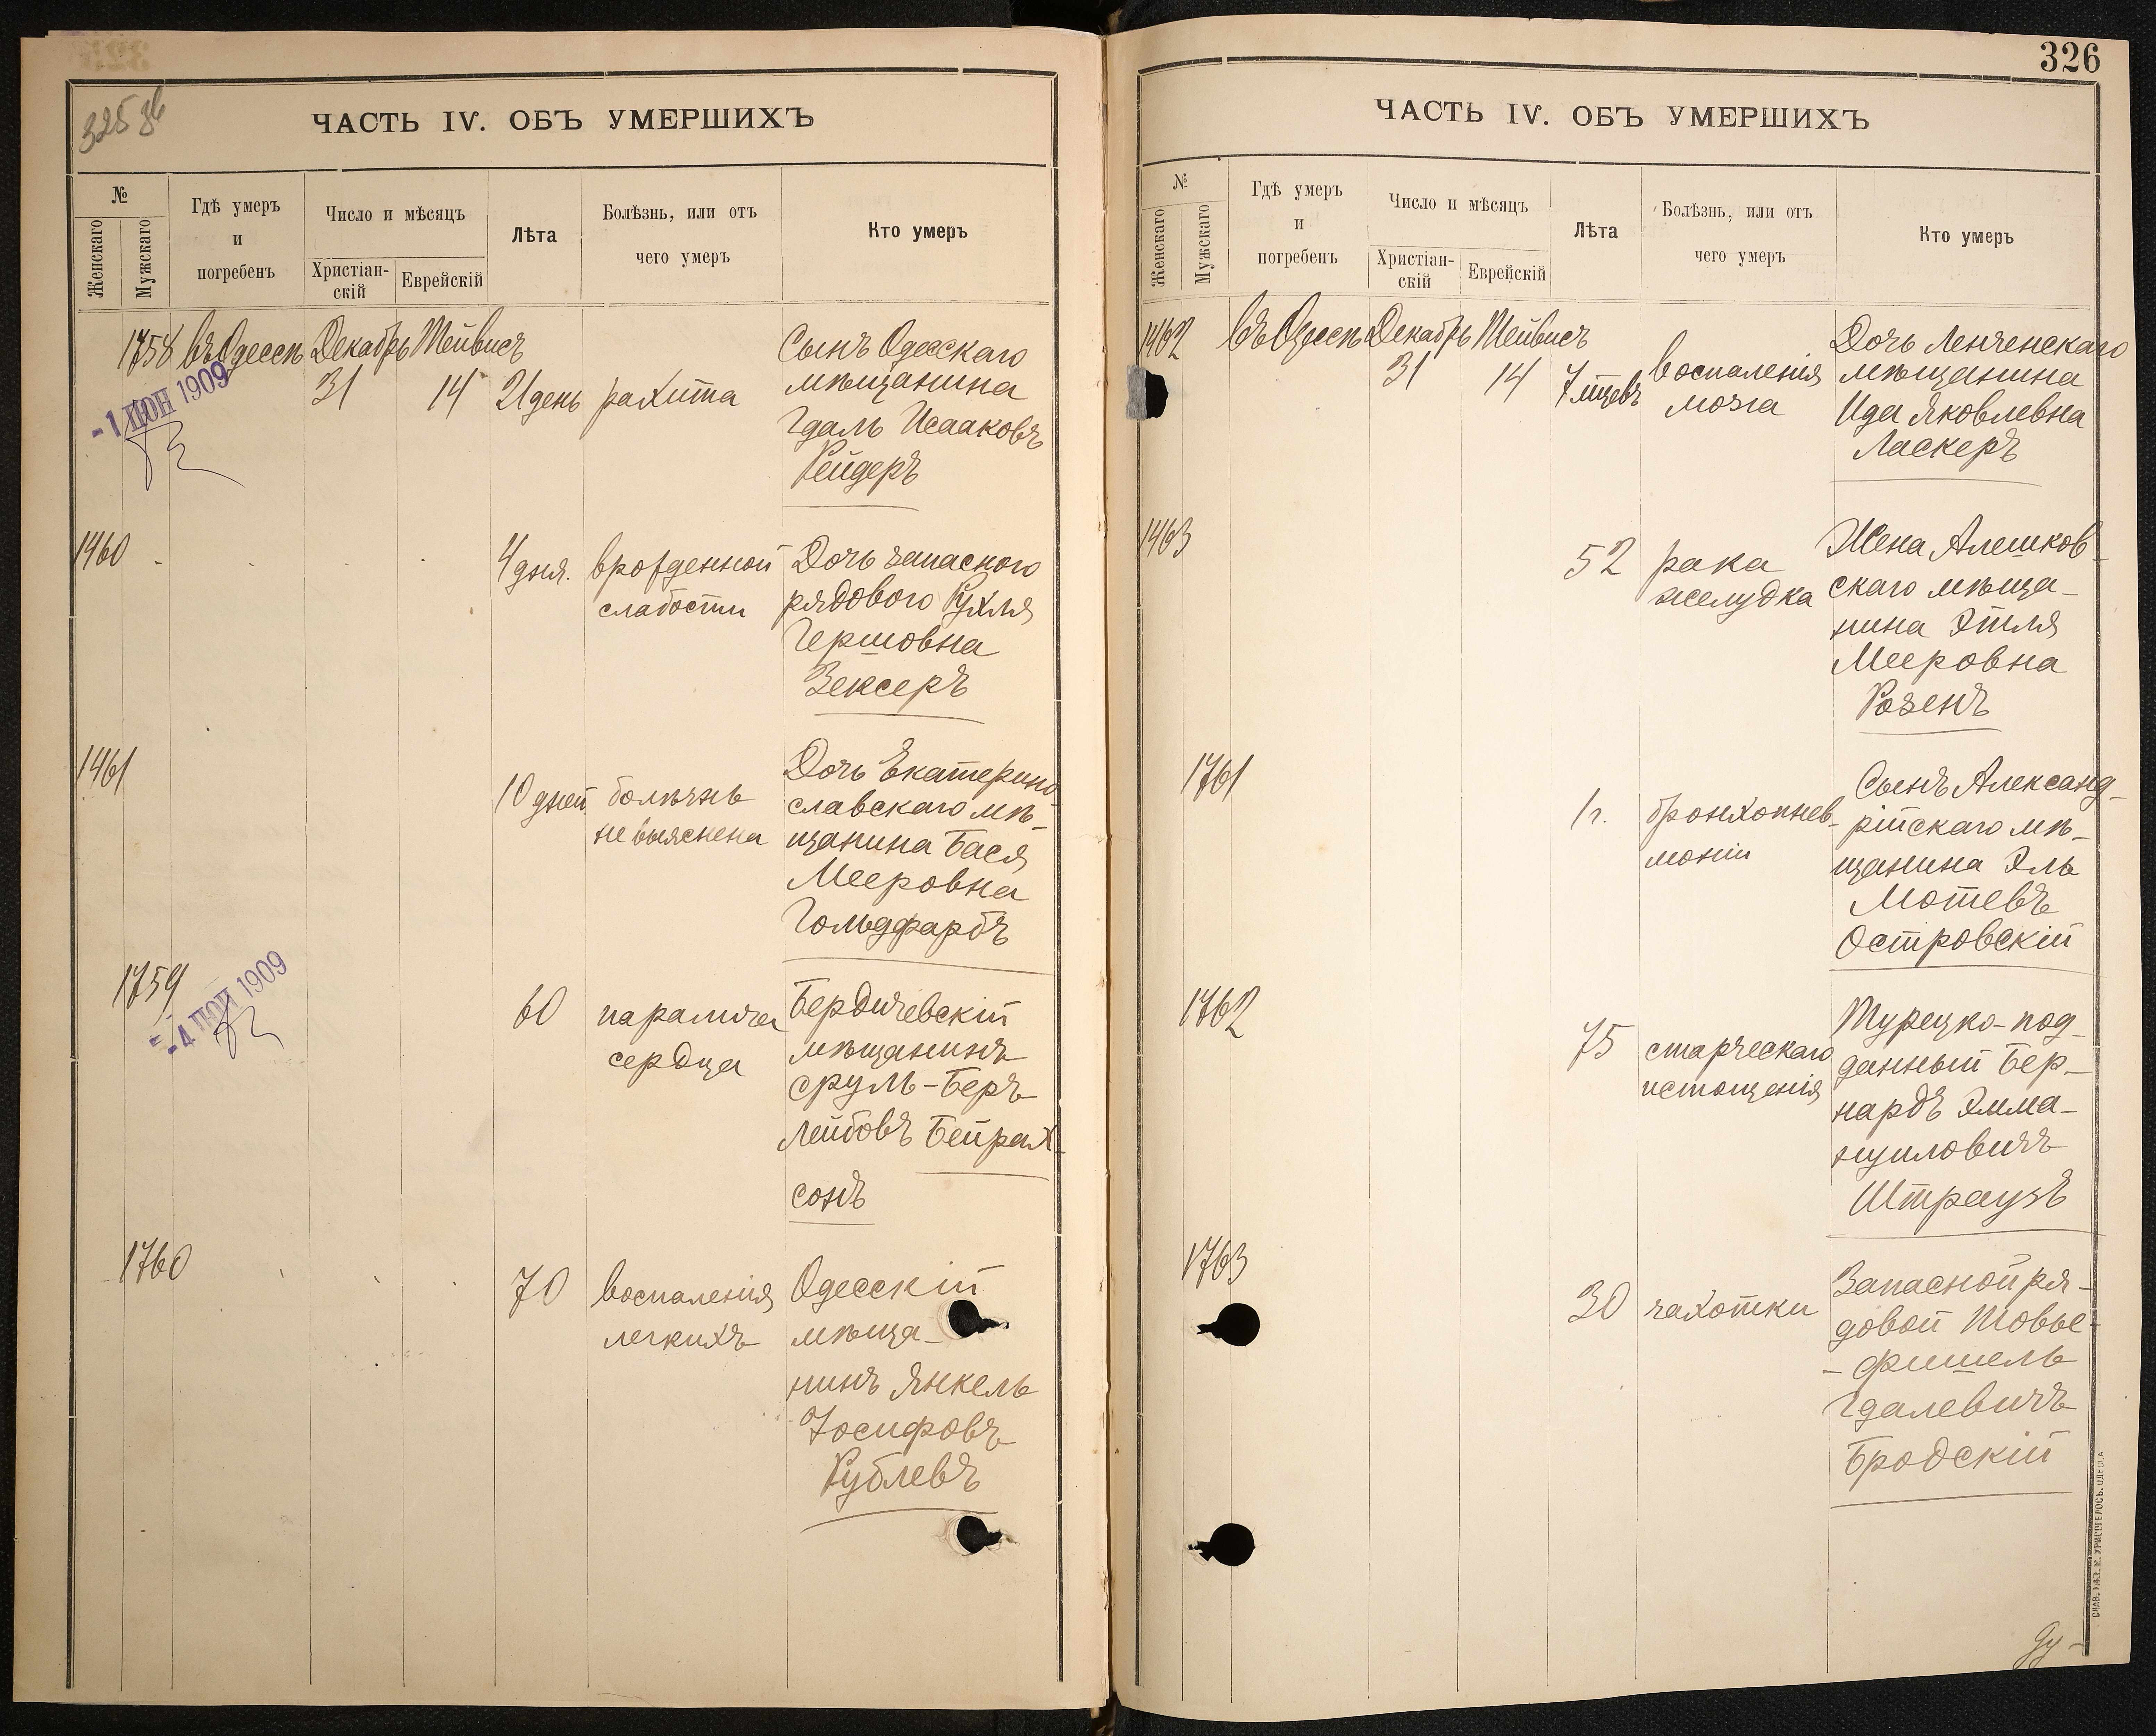 325 об
ЧАСТЬ IV. ОБЪ УМЕРШИХЪ
№
Женскаго
Мужскаго
Гдѣ умеръ
и
погребенъ
Число и мѣсяцъ
Христіан-
скій
Еврейскій
Лѣта
Болѣзнь, или отъ
чего умеръ
Кто умеръ
1758
въ Одессѣ
Декабрь
31
Тейвисъ
14
21 день
рахита
Сынъ Одесскаго
мѣщанина
Гдаль Исааковъ
Рейдеръ
-1 ІЮН 1909
1460
4 дня.
врожденной
слабости
Дочь запасного
рядового Рухля
Гершовна
Зексеръ
1461
10 дней
болѣзнь
не выяснена
Дочь Екатерино-
славскаго мѣ-
щанина Бася
Мееровна
Гольдфарбъ
1759
-4 1909
60
паралича
сердца
Бердичевскій
мѣщанинъ
Сруль-Беръ
Лейбовъ Бейрах-
сонъ
1760
70
воспаленія
легкихъ
Одесскій
мѣща-
нинъ Янкель
Іосифовъ
Рублевъ
326
ЧАСТЬ IV. ОБЪ УМЕРШИХЪ
№
Женскаго
Мужскаго
Гдѣ умеръ
и
погребенъ
Число и мѣсяцъ
Христіан-
скій
Еврейскій
Лѣта
Болѣзнь, или отъ
чего умеръ
Кто умеръ
1462
въ Одессѣ
Декабрь
31
Тейвисъ
14
7 мцевъ
воспаленія
мозга
Дочь Ленченскаго
мѣщанина
Ида Яковлевна
Ласкеръ
1463
52
рака
желудка
Жена Алешков-
скаго мѣща-
нина Этля
Мееровна
Розенъ
1761
1 г.
бронхопнев-
моніи
Сынъ Александ-
рійскаго мѣ-
щанина Эль
Мотевъ
Островскій
1762
75
старческаго
истощенія
Турецко-под-
данный Бер-
нардъ Эмма-
нуиловичъ
Штраузъ
1763
30
чахотки
Запасной ря-
довой Товье-
-Фишель
Гдалевичъ
Бродскій
Ду-